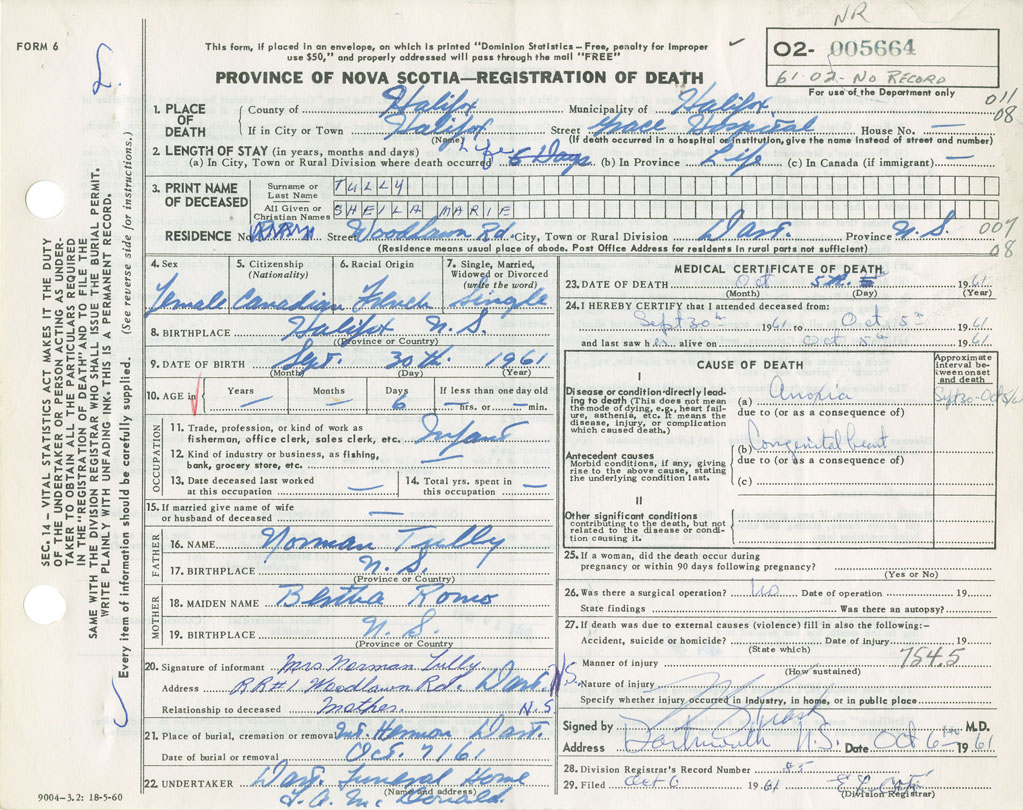 NR
FORM 6
This form, if placed in an envelope, on which is printed "Dominion Statistics – Free, penalty for improper
use $50," and properly addressed will pass through the mail "FREE"
O2- 005664
61-02- No Record
For use of the Department only
PROVINCE OF NOVA SCOTIA—REGISTRATION OF DEATH
011
08
1. PLACE OF DEATH
County of Halifax Municipality of Halifax
If in City or Town Halifax Street Grace Hospital House No. —
(Name) (If death occurred in a hospital or institution, give the name instead of street and number)
2. LENGTH OF STAY (in years, months and days)
(a) In City, Town or Rural Division where death occurred Life 6 Days (b) In Province Life (c) In Canada (if immigrant) —
3. PRINT NAME OF DECEASED
Surname or Last Name TULLY
All Given or Christian Names SHEILA MARIE
RESIDENCE No. Street Woodlawn Rd. City, Town or Rural Division Dart. Province N.S.
007
08
(Residence means usual place of abode. Post Office Address for residents in rural parts not sufficient)
4. Sex 5. Citizenship (Nationality) 6. Racial Origin 7. Single, Married, Widowed or Divorced (write the word)
Female Canadian French Single
8. BIRTHPLACE Halifax N.S.
(Province or Country)
9. DATE OF BIRTH Sept. 30th 1961
(Month) (Day) (Year)
10. AGE in Years — Months — Days 6 If less than one day old — hrs. or — min.
OCCUPATION
11. Trade, profession, or kind of work as
fisherman, office clerk, sales clerk, etc. Infant
12. Kind of industry or business, as fishing,
bank, grocery store, etc. —
13. Date deceased last worked at this occupation —
14. Total yrs. spent in this occupation —
15. If married give name of wife
or husband of deceased —
FATHER
16. NAME Norman Tully
17. BIRTHPLACE N.S.
(Province or Country)
MOTHER
18. MAIDEN NAME Bertha Romo
19. BIRTHPLACE N.S.
(Province or Country)
20. Signature of informant Mrs. Norman Tully
Address RR#1 Woodlawn Rd. Dart. N.S.
Relationship to deceased Mother N.S.
21. Place of burial, cremation or removal Mt. Hermon Dart.
Date of burial or removal Oct. 7/61
22. UNDERTAKER Dart. Funeral Home
(Name and address)
McDonald
MEDICAL CERTIFICATE OF DEATH
23. DATE OF DEATH Oct 5th 1961
(Month) (Day) (Year)
24. I HEREBY CERTIFY that I attended deceased from:
Sept 30th 1961 to Oct 5th 1961
and last saw her alive on Oct 5th 1961
CAUSE OF DEATH
Approximate interval between onset and death
I
Disease or condition directly leading to death (This does not mean the mode of dying, e.g., heart failure, asthenia, etc. It means the disease, injury, or complication which caused death.)
(a) Anoxia Sept 30-Oct 5/61
due to (or as a consequence of)
Antecedent causes
Morbid conditions, if any, giving rise to the above cause, stating the underlying condition last.
(b) Congenital heart
due to (or as a consequence of)
(c)
II
Other significant conditions
contributing to the death, but not related to the disease or condition causing it.
25. If a woman, did the death occur during
pregnancy or within 90 days following pregnancy?
(Yes or No)
26. Was there a surgical operation? No Date of operation 19
State findings Was there an autopsy?
27. If death was due to external causes (violence) fill in also the following:–
Accident, suicide or homicide? Date of injury 19
(State which)
754.5
Manner of injury
(How sustained)
Nature of injury
Specify whether injury occurred in industry, in home, or in public place
Signed by M.D.
Address Dartmouth N.S. Date Oct 6 1961
28. Division Registrar's Record Number 85
29. Filed Oct 6 1961
(Division Registrar)
SEC. 14 – VITAL STATISTICS ACT MAKES IT THE DUTY
OF THE UNDERTAKER OR PERSON ACTING AS UNDER-
TAKER TO OBTAIN ALL THE PARTICULARS REQUIRED
IN THE "REGISTRATION OF DEATH" AND TO FILE THE
SAME WITH THE DIVISION REGISTRAR WHO SHALL ISSUE THE BURIAL PERMIT.
WRITE PLAINLY WITH UNFADING INK. THIS IS A PERMANENT RECORD.
Every item of information should be carefully supplied. (See reverse side for instructions.)
9004-3.2: 18-5-60